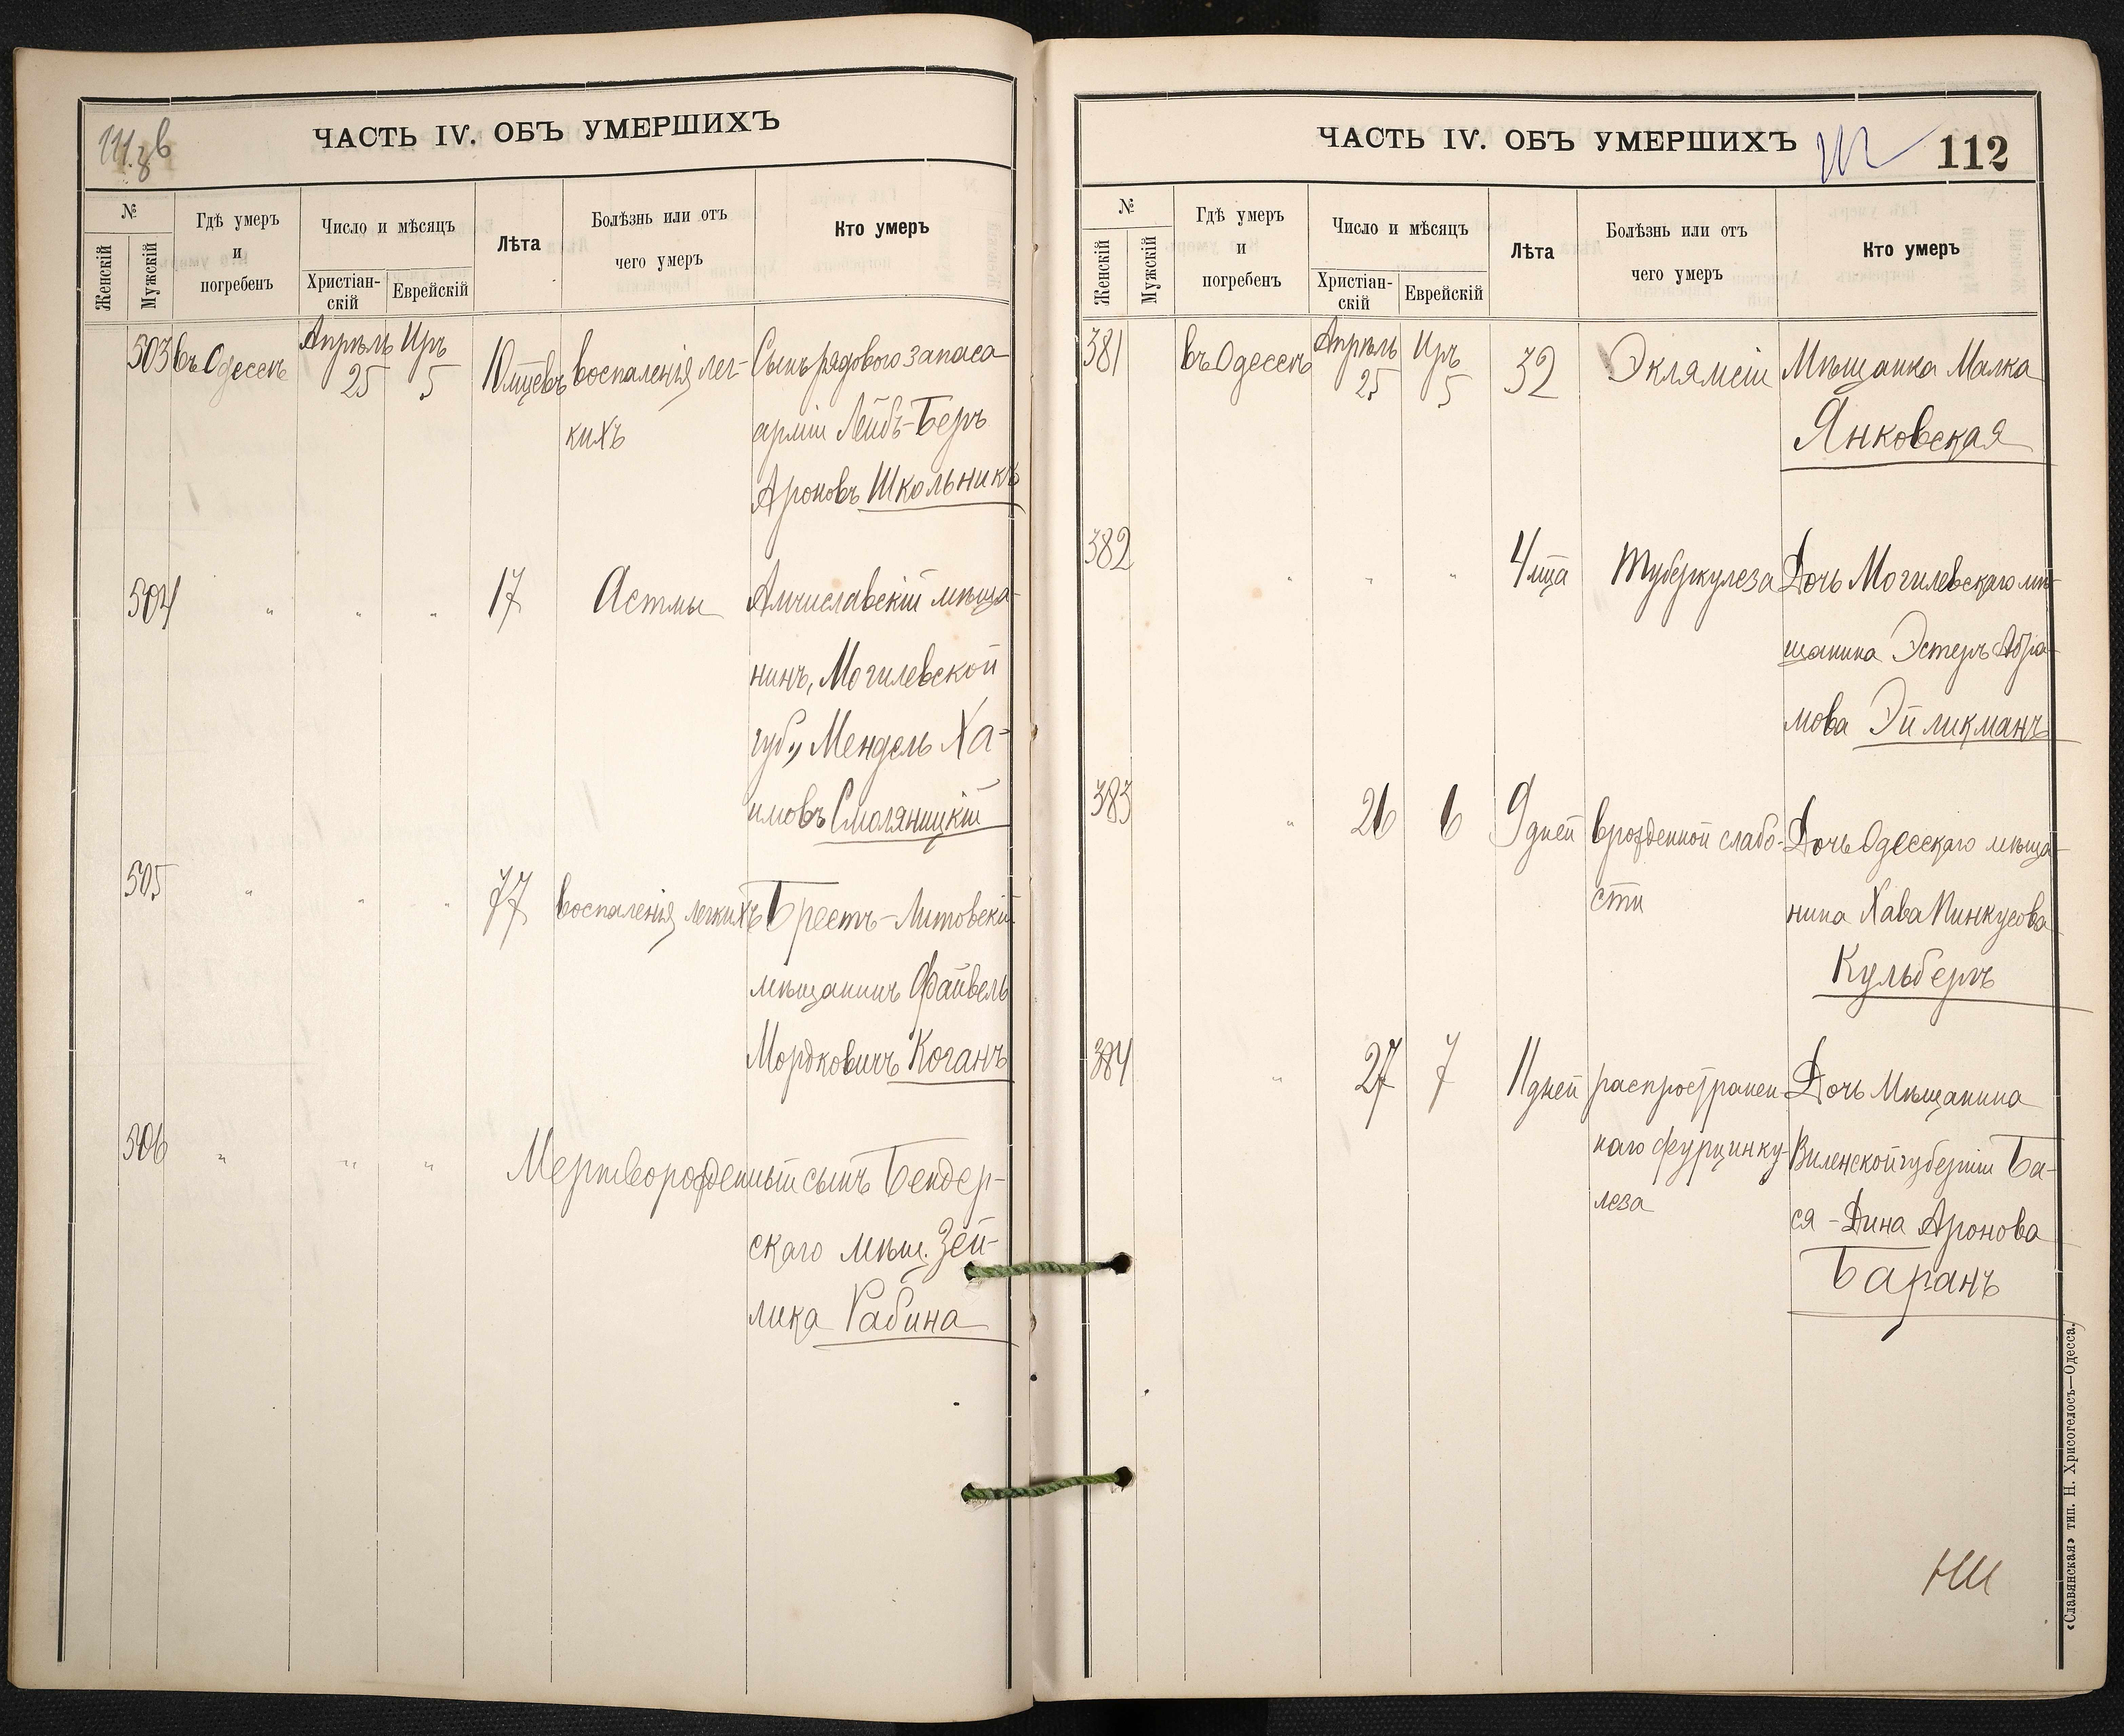 111.зв
ЧАСТЬ IV. ОБЪ УМЕРШИХЪ
№
Женскій
Мужскій
Гдѣ умеръ
и
погребенъ
Число и мѣсяцъ
Христіан-
скій
Еврейскій
Лѣта
Болѣзнь или отъ
чего умеръ
Кто умеръ
503 въ Одессѣ Апрѣль 25 Иръ 5 10 мцевъ воспаленія лег- Сынъ рядового запаса
кихъ арміи Лейбъ-Беръ
Ароновъ Школьникъ
504 " " " 17 Астмы Амчиславскій мѣща-
нинъ, Могилевской
губ., Мендель Ха-
имовъ Смоляницкій
505 " " " 77 воспаленія легкихъ Брестъ-Литовскій
мѣщанинъ Файвель
Мордковичъ Коганъ
506 " " " Мертворожденный сынъ Бендер-
скаго мѣщ. Зей-
лика Рабина
ЧАСТЬ IV. ОБЪ УМЕРШИХЪ
112
№
Женскій
Мужскій
Гдѣ умеръ
и
погребенъ
Число и мѣсяцъ
Христіан-
скій
Еврейскій
Лѣта
Болѣзнь или отъ
чего умеръ
Кто умеръ
381 въ Одессѣ Апрѣль 25 Иръ 5 32 Эклямсіи Мѣщанка Малка
Янковская
382 " " " 4 мца Туберкулеза Дочь Могилевскаго мѣ-
щанина Эстеръ Абра-
мова Эйликманъ
383 " 26 6 9 дней врожденной слабо- Дочь Одесскаго мѣща-
сти нина Хава Пинкусова
Кульберъ
384 " 27 7 11 дней распространен- Дочь Мѣщанина
наго фурцинку- Виленской губерніи Ба-
леза ся-Дина Аронова
Баранъ
«Славянская» тип. Н. Хрисогелосъ—Одесса.